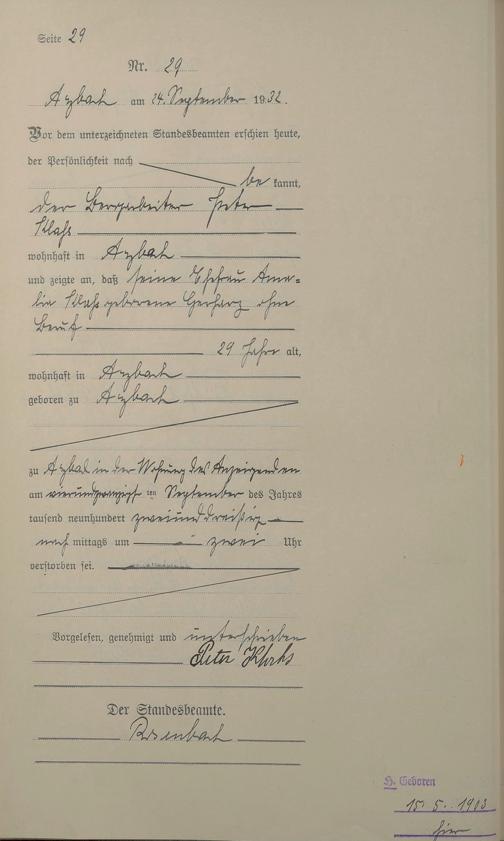 Seite 29
Nr. 29
Arzbach am 24. September 1932.
Vor dem unterzeichneten Standesbeamten erschien heute,
der Persönlichkeit nach
be kannt,
der Bergarbeiter Peter
Klahs
wohnhaft in Arzbach
und zeigte an, daß seine Ehefrau Ama=
lie Klahs geborene Gerharz ohne
Beruf
29 Jahre alt,
wohnhaft in Arzbach
geboren zu Arzbach
zu Arzbach in der Wohnung des Anzeigenden
am vierundzwanzigsten September des Jahres
tausend neunhundert zweiunddreißig
nach mittags um zwei Uhr
verstorben sei.
Vorgelesen, genehmigt und unterschrieben
Peter Klahs
Der Standesbeamte.
Rosenbach
H. Geboren
15. 5. 1903
hier